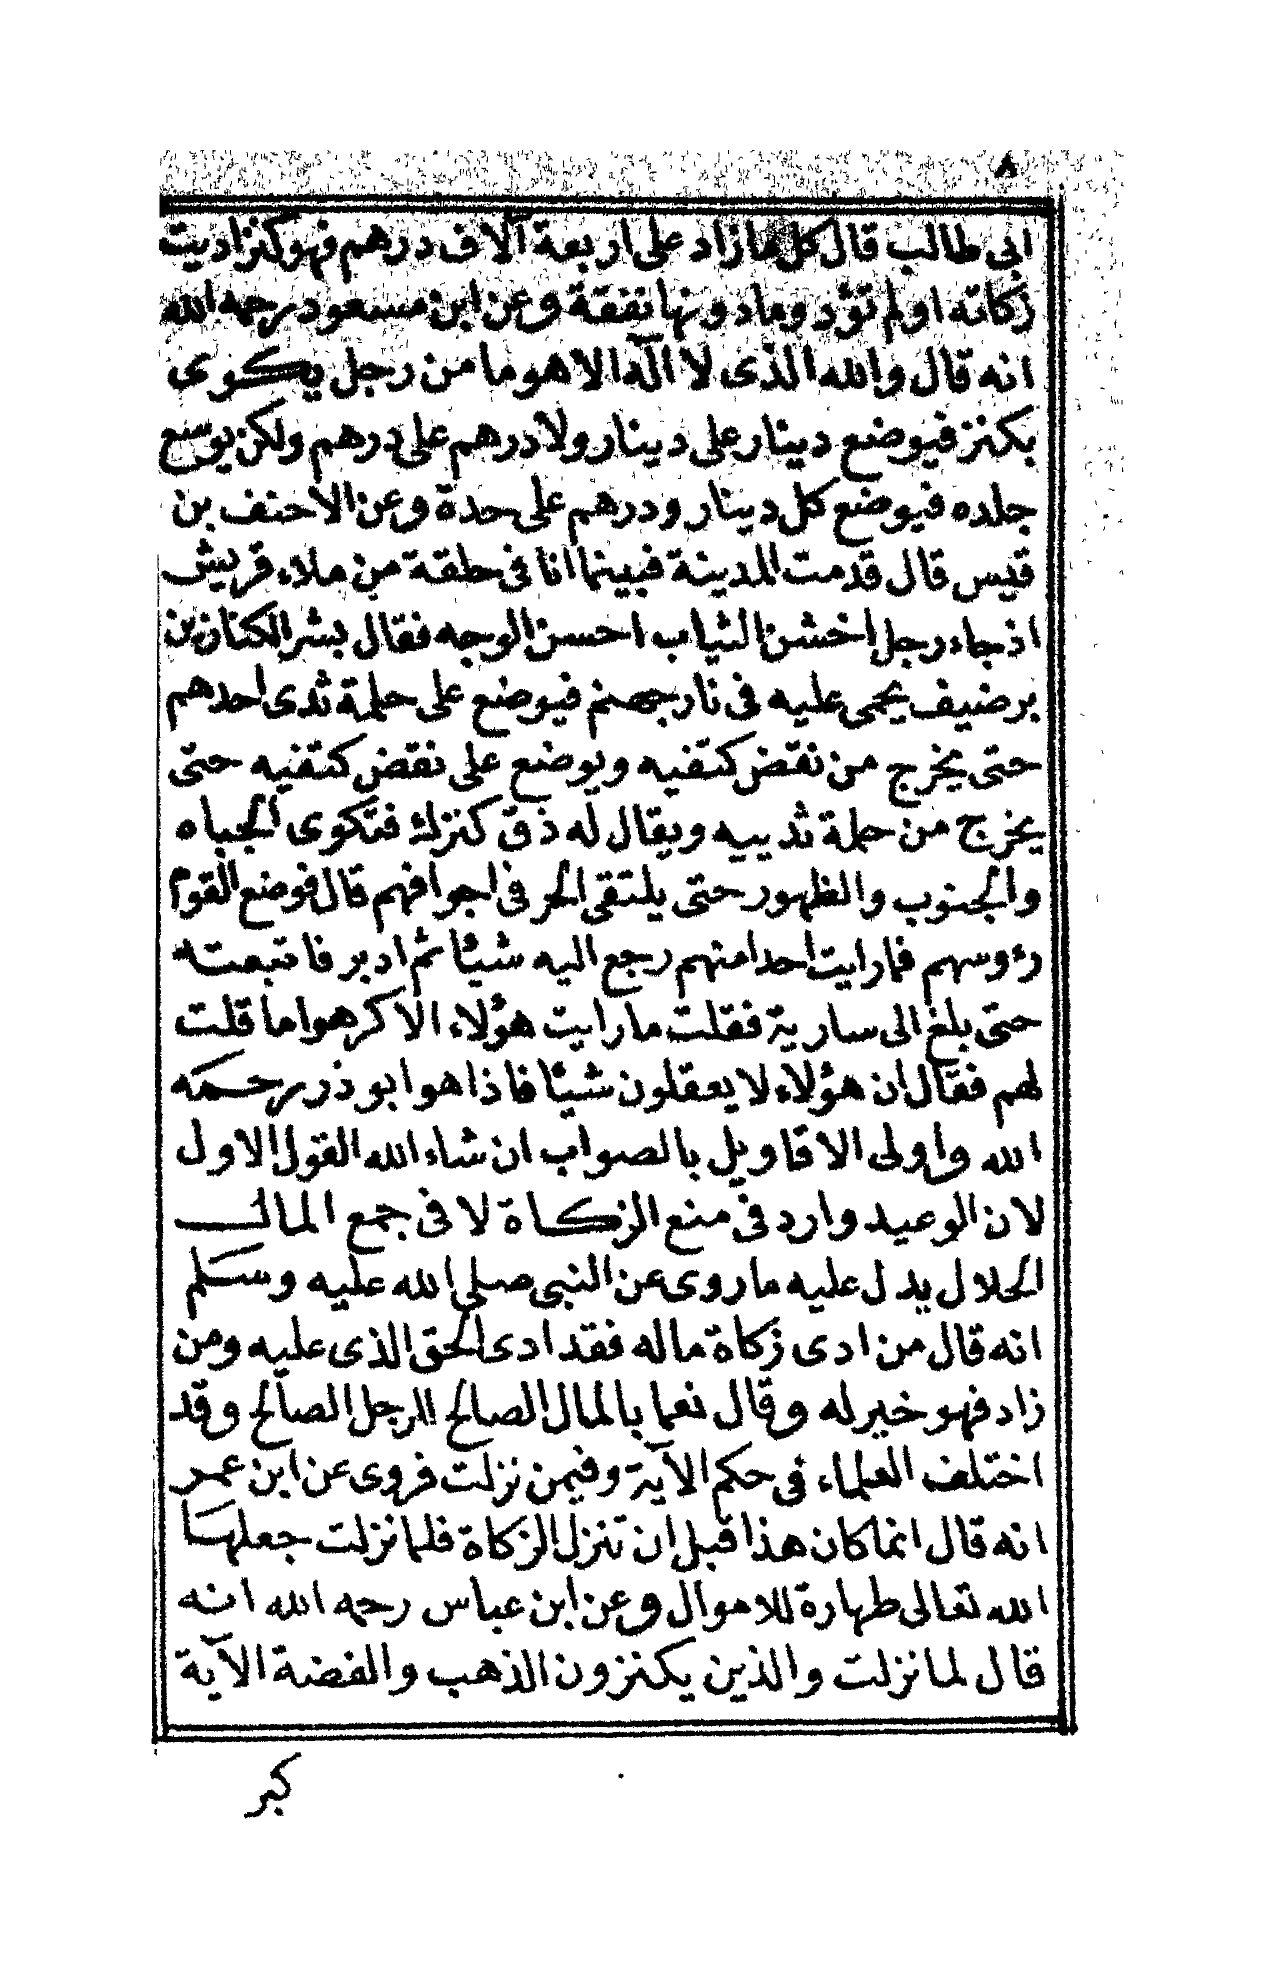 ٨
ابى طالب قال كل ما زاد على اربعة آلاف درهم فهو كنز اديت
زكاته او لم تؤد وما دونها نفقة وعن ابن مسعود رحمه الله
انه قال والله الذى لا اله الا هو ما من رجل يكوى
بكنز فيوضع دينار على دينار ولا درهم على درهم ولكن يوسع
جلده فيوضع كل دينار ودرهم على حدة وعن الاحنف بن
قيس قال قدمت المدينة فبينما انا فى حلقة من ملاء قريش
اذ جاء رجل اخشن الثياب احسن الوجه فقال بشر الكنازين
برضيف يحمى عليه فى نار جهنم فيوضع على حلمة ثدى احدهم
حتى يخرج من نقض كتفيه ويوضع على نقض كتفيه حتى
يخرج من حلمة ثدييه ويقال له ذق كنزك فتكوى الجباه
والجنوب والظهور حتى يلتقى الحر فى اجوافهم قال فوضع القوم
رءوسهم فما رايت احدا منهم رجع اليه شيئا ثم ادبر فاتبعته
حتى بلغ الى سارية فقلت ما رايت هؤلاء الا كرهوا ما قلت
لهم فقال ان هؤلاء لا يعقلون شيئا فاذا هو ابو ذر رحمه
الله واولى الاقاويل بالصواب ان شاء الله القول الاول
لان الوعيد وارد فى منع الزكاة لا فى جمع المال
الحلال يدل عليه ما روى عن النبى صلى الله عليه وسلم
انه قال من ادى زكاة ماله فقد ادى الحق الذى عليه ومن
زاد فهو خير له وقال نعما بالمال الصالح للرجل الصالح وقد
اختلف العلماء فى حكم الآية وفيمن نزلت فروى عن ابن عمر
انه قال انما كان هذا قبل ان تنزل الزكاة فلما نزلت جعلها
الله تعالى طهارة للاموال وعن ابن عباس رحمه الله انه
قال لما نزلت والذين يكنزون الذهب والفضة الآية
كبر